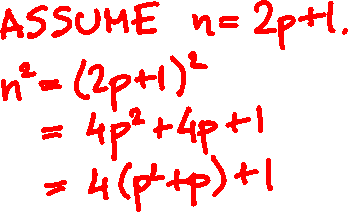 ASSUME n = 2p+1.
n² = (2p+1)²
= 4p² + 4p + 1
= 4(p²+p) + 1